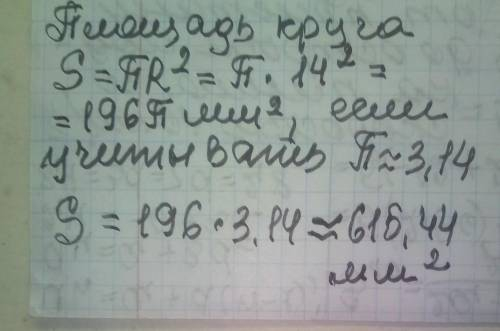 Площадь круга
S = ПR² = П · 14² =
= 196П мм², если
учитывать П ≈ 3,14
S = 196 · 3,14 ≈ 615,44
мм²